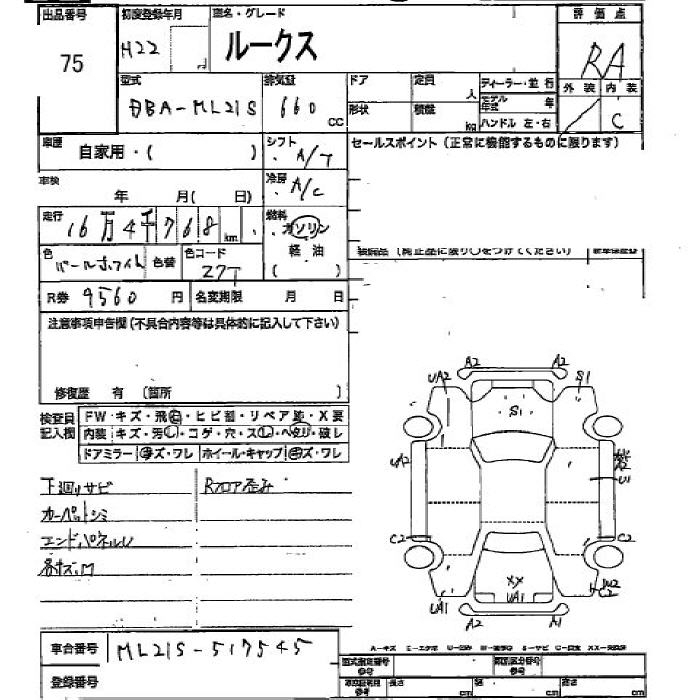 出品番号
75
初度登録年月
H22
車名・グレード
ルークス
評価点
RA
外装 内装
C
型式
DBA-ML21S
排気量
660
CC
ドア
形状
定員
人
積載
kg
ディーラー・並行
モデル年式 年
ハンドル 左・右
車歴
自家用・( )
シフト
A/T
セールスポイント (正常に機能するものに限ります)
車検
年 月( 日)
冷房
A/C
走行
16万4千768
km
燃料
ガソリン
軽油
( )
色
パールホワイト
色替
色コード
Z7T
(純正品に限り○をつけてください)
R券
9560
円
名変期限 月 日
注意事項申告欄(不具合内容等は具体的に記入して下さい)
修復歴 有 (箇所 )
検査員
記入欄
FW・キズ・飛石・ヒビ割・リペア跡・X要
内装 キズ・汚レ・コゲ・穴・スレ・ヘタリ・破レ
ドアミラー キズ・ワレ ホイール・キャップ キズ・ワレ
下廻りサビ
Rフロア歪み
カーペットシミ
エンドパネルU
A2
A2
UA2
S1
S1
UA2
U1
C2
C2
XX
UA1
UA1
W2
C2
A2
A1
車台番号
ML21S-517545
登録番号
A-キズ
型式指定番号
類別区分番号
長さ
cm
幅
cm
高さ
cm